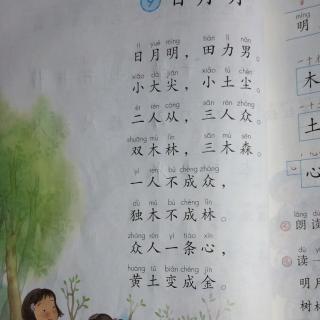 9 日月明
rì yuè míng tián lì nán
日月明，田力男。
xiǎo dà jiān xiǎo tǔ chén
小大尖，小土尘。
èr rén cóng sān rén zhòng
二人从，三人众。
shuāng mù lín sān mù sēn
双木林，三木森。
yì rén bù chéng zhòng
一人不成众，
dú mù bù chéng lín
独木不成林。
zhòng rén yì tiáo xīn
众人一条心，
huáng tǔ biàn chéng jīn
黄土变成金。
míng
明
木
土
心
朗读
读一
明月
树林